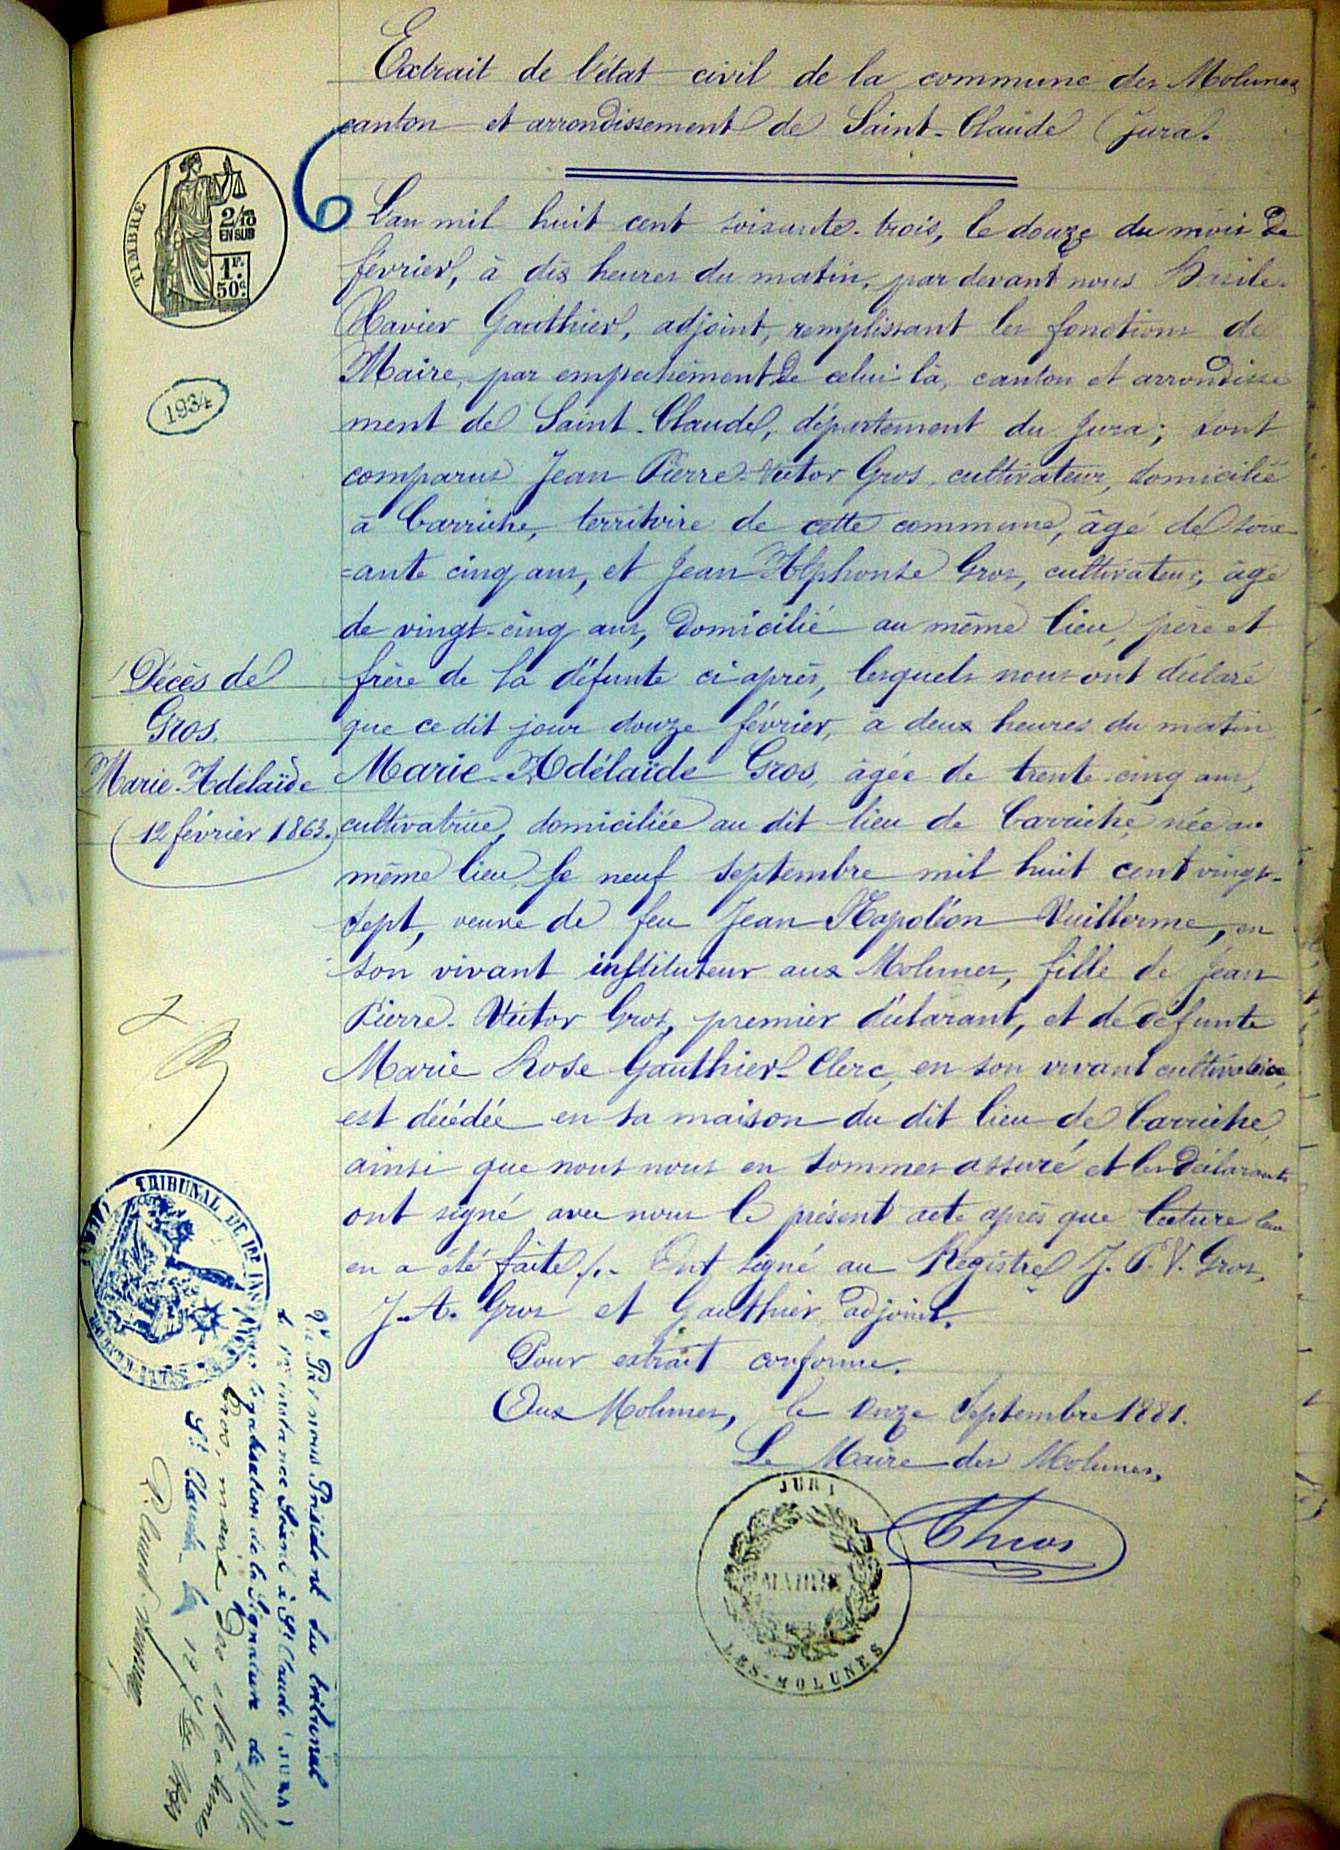 Extrait de l'état civil de la commune des Molunes
canton et arrondissement de Saint-Claude (Jura.
6
TIMBRE
2/10
EN SUS
1F.
50c
L'an mil huit cent soixante-trois, le douze du mois de
février, à dix heures du matin, par devant nous Basile-
Xavier Gauthier, adjoint, remplissant les fonctions de
Maire, par empêchement de celui-là, canton et arrondisse
1934
ment de Saint-Claude, département du Jura; sont
comparus Jean Pierre-Victor Gros, cultivateur, domicilié
à Carriche, territoire de cette commune, âgé de soix
=ante cinq ans, et Jean Alphonse Gros, cultivateur, âgé
de vingt-cinq ans, domicilié au même lieu, père et
Décès de
Gros.
Marie-Adélaïde
(12 février 1863.)
frère de la défunte ci-après, lesquels nous ont déclaré
que ce dit jour douze février, à deux heures du matin
Marie-Adélaïde Gros, âgée de trente-cinq ans,
cultivatrice, domiciliée au dit lieu de Carriche, née au
même lieu le neuf septembre mil huit cent vingt-
sept, veuve de feu Jean Napoléon Vuillerme, en
son vivant instituteur aux Molunes, fille de Jean
Pierre-Victor Gros, premier déclarant, et de défunte
Marie Rose Gauthier-Clerc, en son vivant cultivatrice,
est décédée en sa maison du dit lieu de Carriche,
ainsi que nous nous en sommes assuré et les déclarants
ont signé avec nous le présent acte après que lecture leur
en a été faite./.- Ont signé au Registre J. P. V. Gros,
J.-A. Gros et Gauthier, adjoint.
Pour extrait conforme.
Aux Molunes, le onze Septembre 1881.
Le Maire des Molunes,
JURA
MAIRIE
LES-MOLUNES
TRIBUNAL DE 1re INSTANCE
Vu Par nous Président du tribunal
de 1re instance séant à St Claude (JURA)
pour légalisation de la Signature de Mr.
Gros, maire des Molunes
St Claude le 12